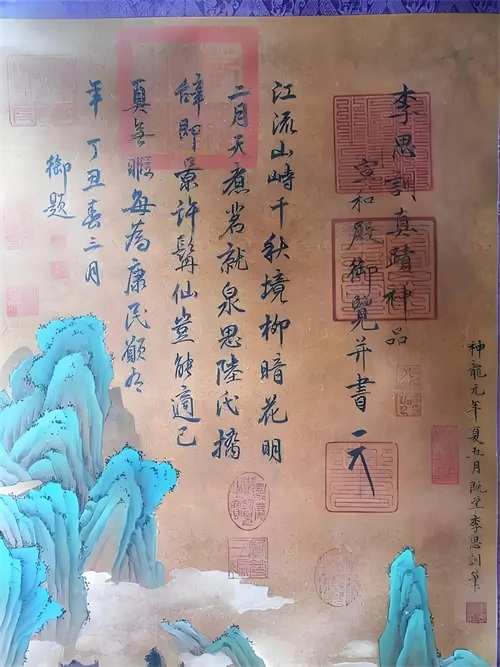 神龍元年夏五月既望李思訓筆
李思訓真蹟神品
宣和殿御覽并書
江流山峙千秋境柳暗花明
二月天煮茗就泉思陸氏摛
辭即景許髯仙豈能適己
夏無暇每為康民願有
年丁丑春三月
御題